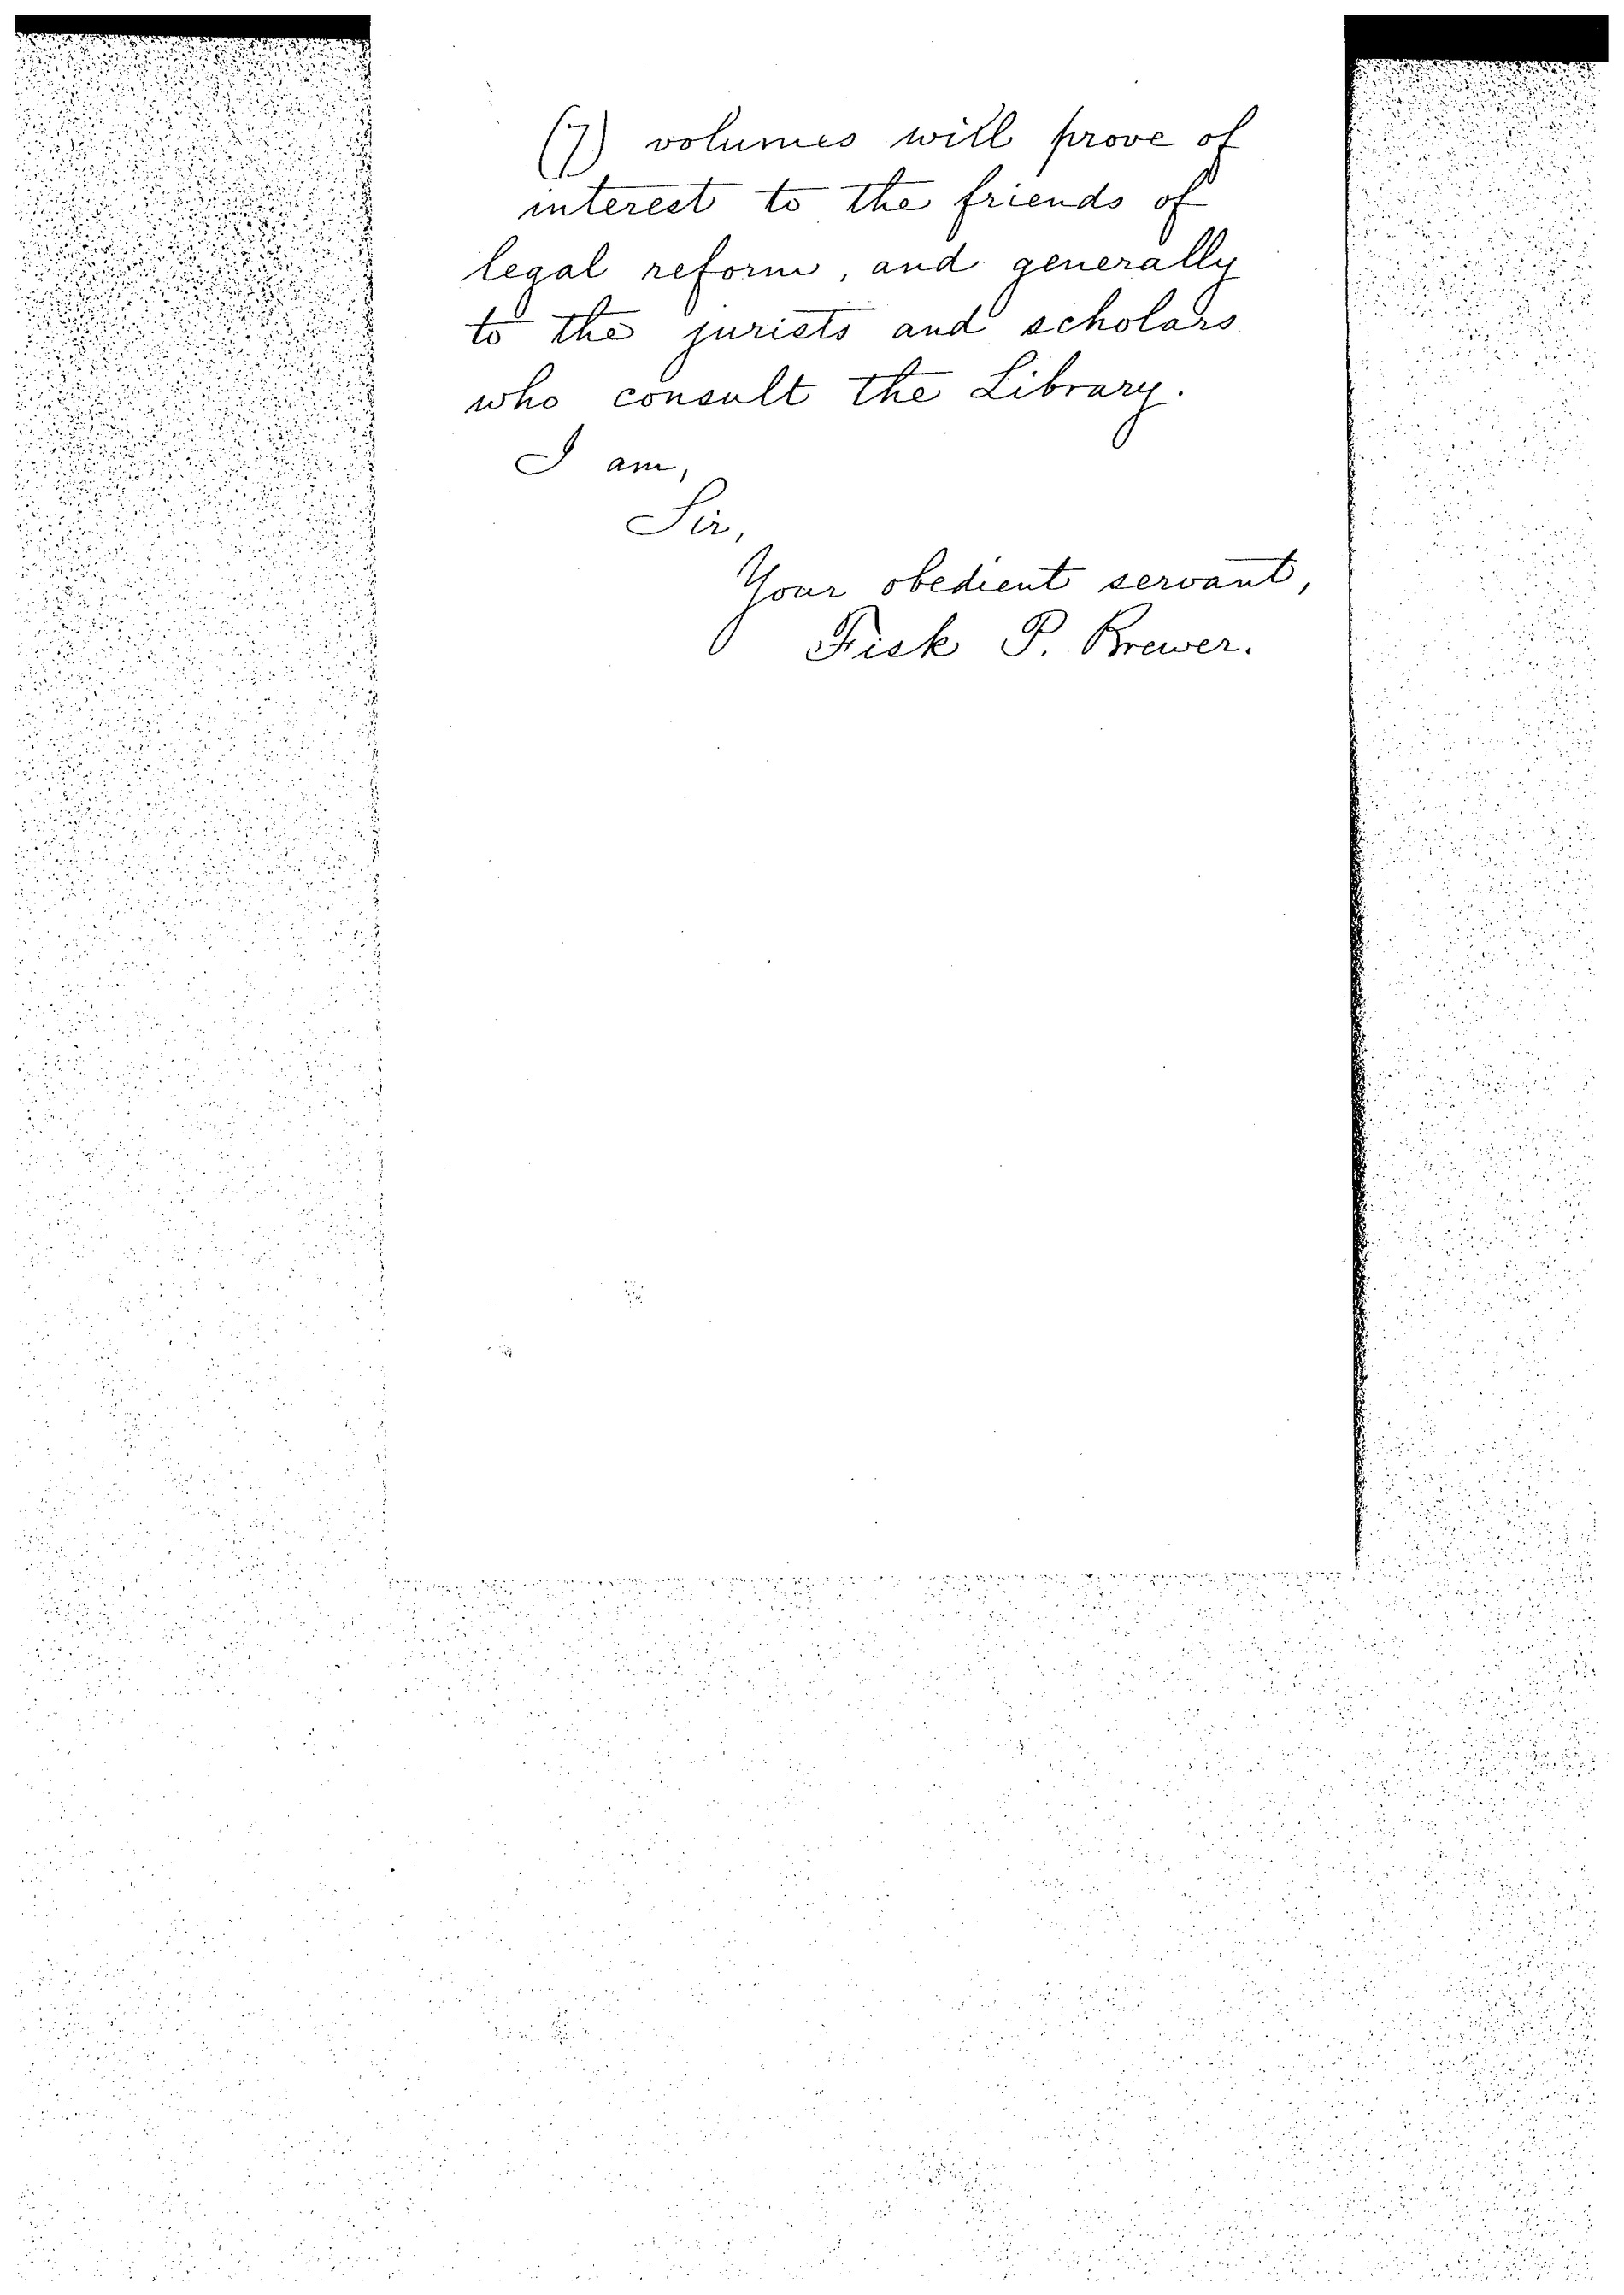 (7) volumes will prove of
interest to the friends of
legal reform, and generally
to the jurists and scholars
who consult the Library.
I am,
Sir,
Your obedient servant,
Fisk P. Brewer.